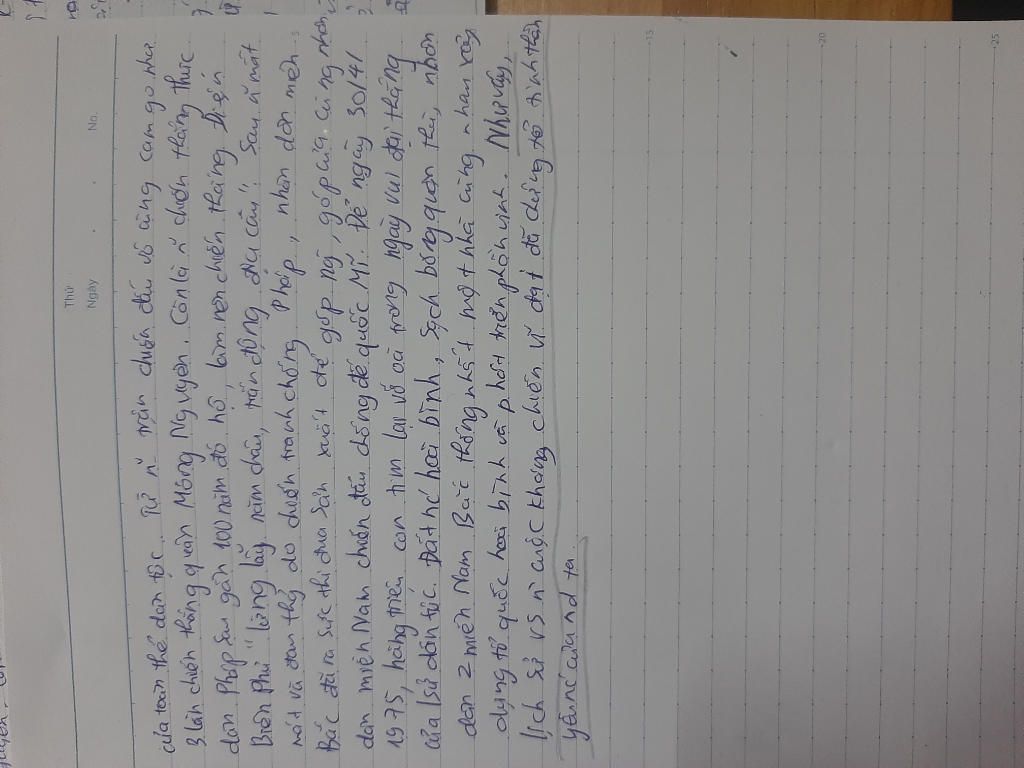 Thứ
Ngày No.
của toàn thể dân tộc. Từ n~ trận chiến đấu vô cùng cam go như
3 lần chiến thắng quân Mông Nguyên. Còn là n~ chiến thắng thực
dân Pháp sau gần 100 năm đô hộ, làm nên chiến thắng Điện
Biên Phủ "lừng lẫy năm châu, trấn động địa cầu". Sau n~ mất
mát và đau thg do chiến tranh chống Pháp, nhân dân miền
Bắc đã ra sức thi đua sản xuất để góp ng, góp của cùng nhân
dân miền Nam chiến đấu chống đế quốc Mĩ. Để ngày 30/4/
1975, hàng triệu con tim lại vỡ oà trong ngày vui đại thắng
của lsử dân tộc. Đất nc hoà bình, sạch bóng quân thù, nhân
dân 2 miền Nam Bắc thống nhất một nhà cùng nhau xây
dựng tổ quốc hoà bình và phát triển phồn vinh. Như vậy,
lịch sử vs n~ cuộc kháng chiến vĩ đại đã chứng tỏ tinh thần
yêu nc của nd ta.
15
20
25